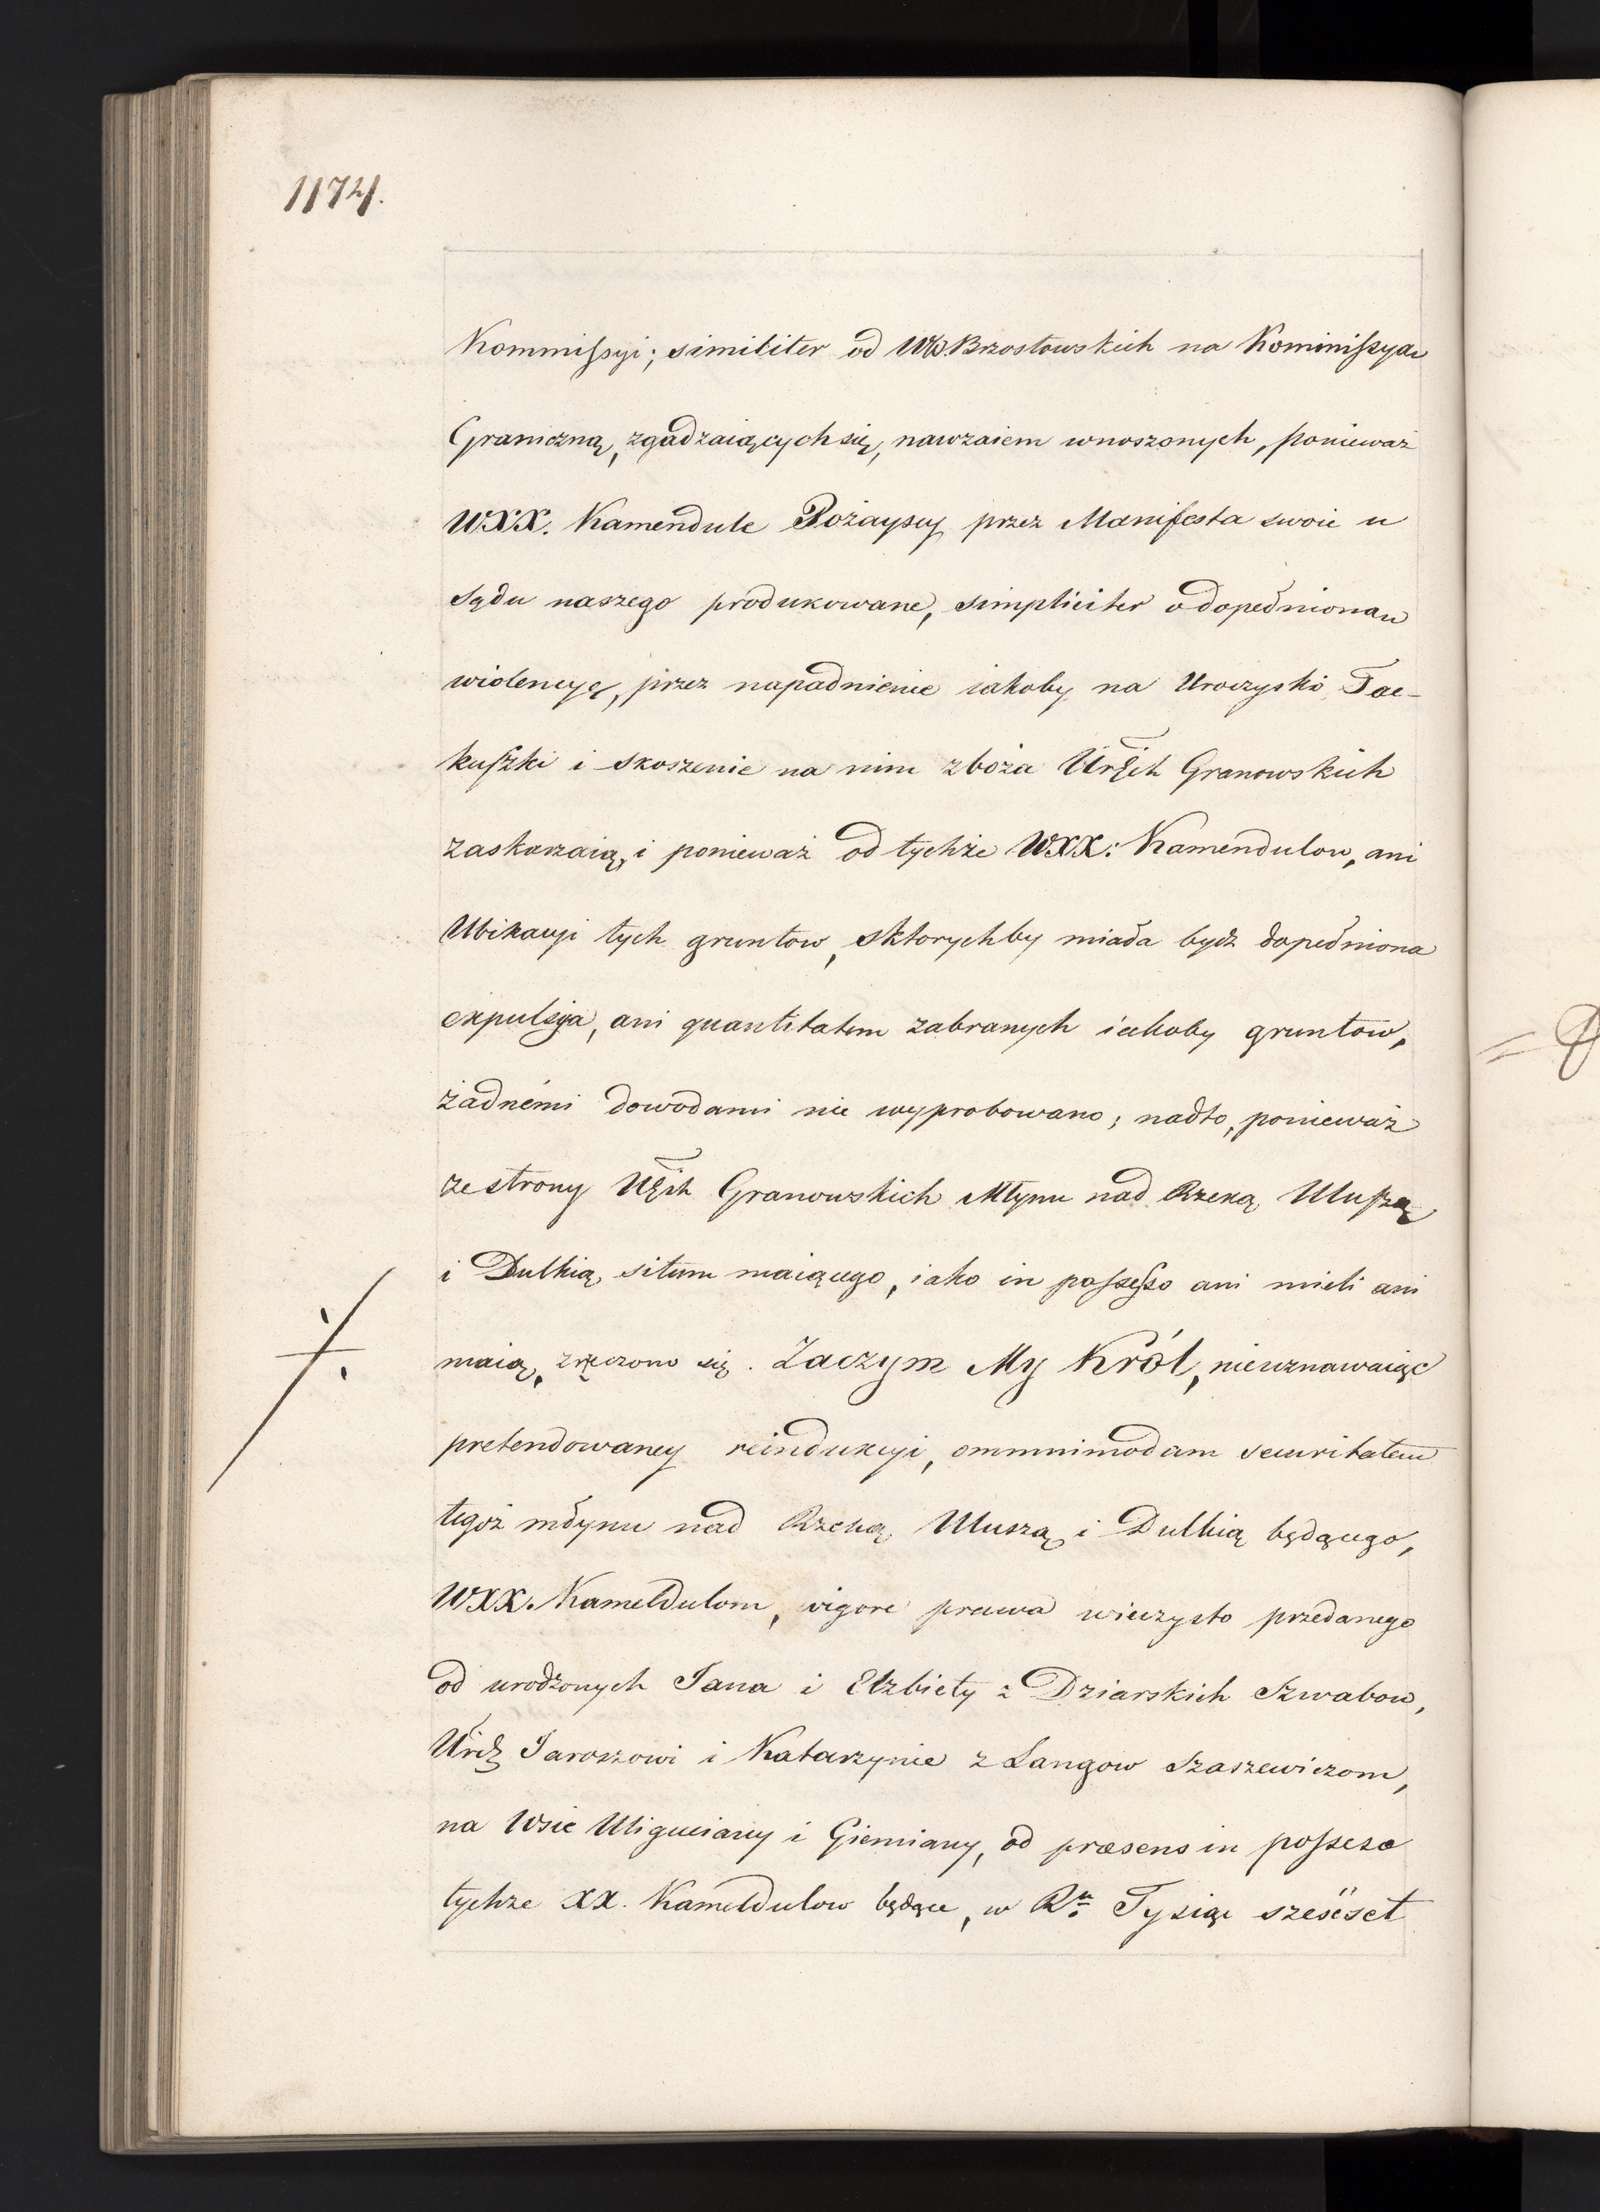 1174.
Kommiſsyi; similiter od WW Brzostowskich na Kommiſsyą
Graniczną, zgadzaiących się, nawzaiem wnoszonych, ponieważ
WXX. Kamendule Pożayscy przez Manifesta swoie u
Sądu naszego produkowane, simpliciter o dopełnioną
wiolencyę, przez napadnienie iakoby na Uroczysko Tac-
kuſzki i skoszenie na nim zboża Urdzch Granowskich
zaskarzaią, i ponieważ od tychże WXX: Kamendulow, ani
Ubikacyi tych gruntow, zktorychby miała bydź dopełniona
expulsya, ani quantitatem zabranych iakoby gruntow,
żadnémi dowodami nie wyprobowano; nadto, ponieważ
ze strony Urch Granowskich Młynu nad Rzeką Uluſzą
i Dulkią situm maiącego, iako in poſseſso ani mieli ani
maią, zrzeczono się. Zaczym My Król, nieuznawaiąc
pretendowaney reindukcyi, ommnimodam securitatem
tegoż młynu nad Rzeką Uluszą i Dulkią będącego,
WXX. Kameldulom, vigore prawa wieczysto przedanego
od urodzonych Jana i Elżbiety z Dziarskich Szwabow,
Urdz Jaroszowi i Katarzynie z Langow Szaszewiczom,
na Wsie Uligciany i Giemiany, ad præsens in poſseso
tychże XX. Kameldulow będące, w Ru Tysiąc sześćset